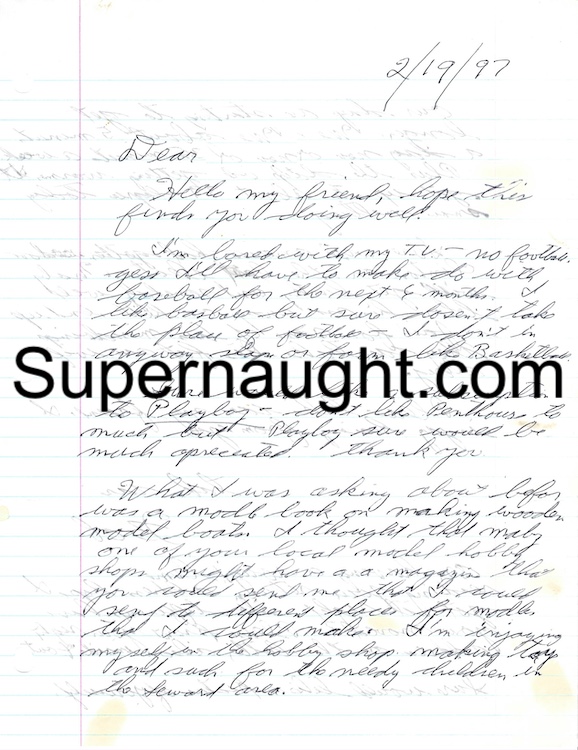 2/19/97
Dear
Hello my friend, hope this
finds you doing well!
I'm bored with my T.V. - no footbal.
gess I'll have to make do with
baseball for the next 6 months. I
like basbow but sure doesn't take
the place of footbal - I don't in
anyway shap or form like Basketball
Supernaught.com
to Playboy - don't like Penthouse to
much but - Playboy sure would be
much apreceated. Thank you
What I was asking about befor
was a modle book on making wooden
model boats. I thought that maby
one of your local model hobby
shops might have a a magazin that
you could send me that I could
send to different places for modles
that I could make. I'm injoying
myself in the hobby shop making toys
and such for the needy children in
the Seward area.